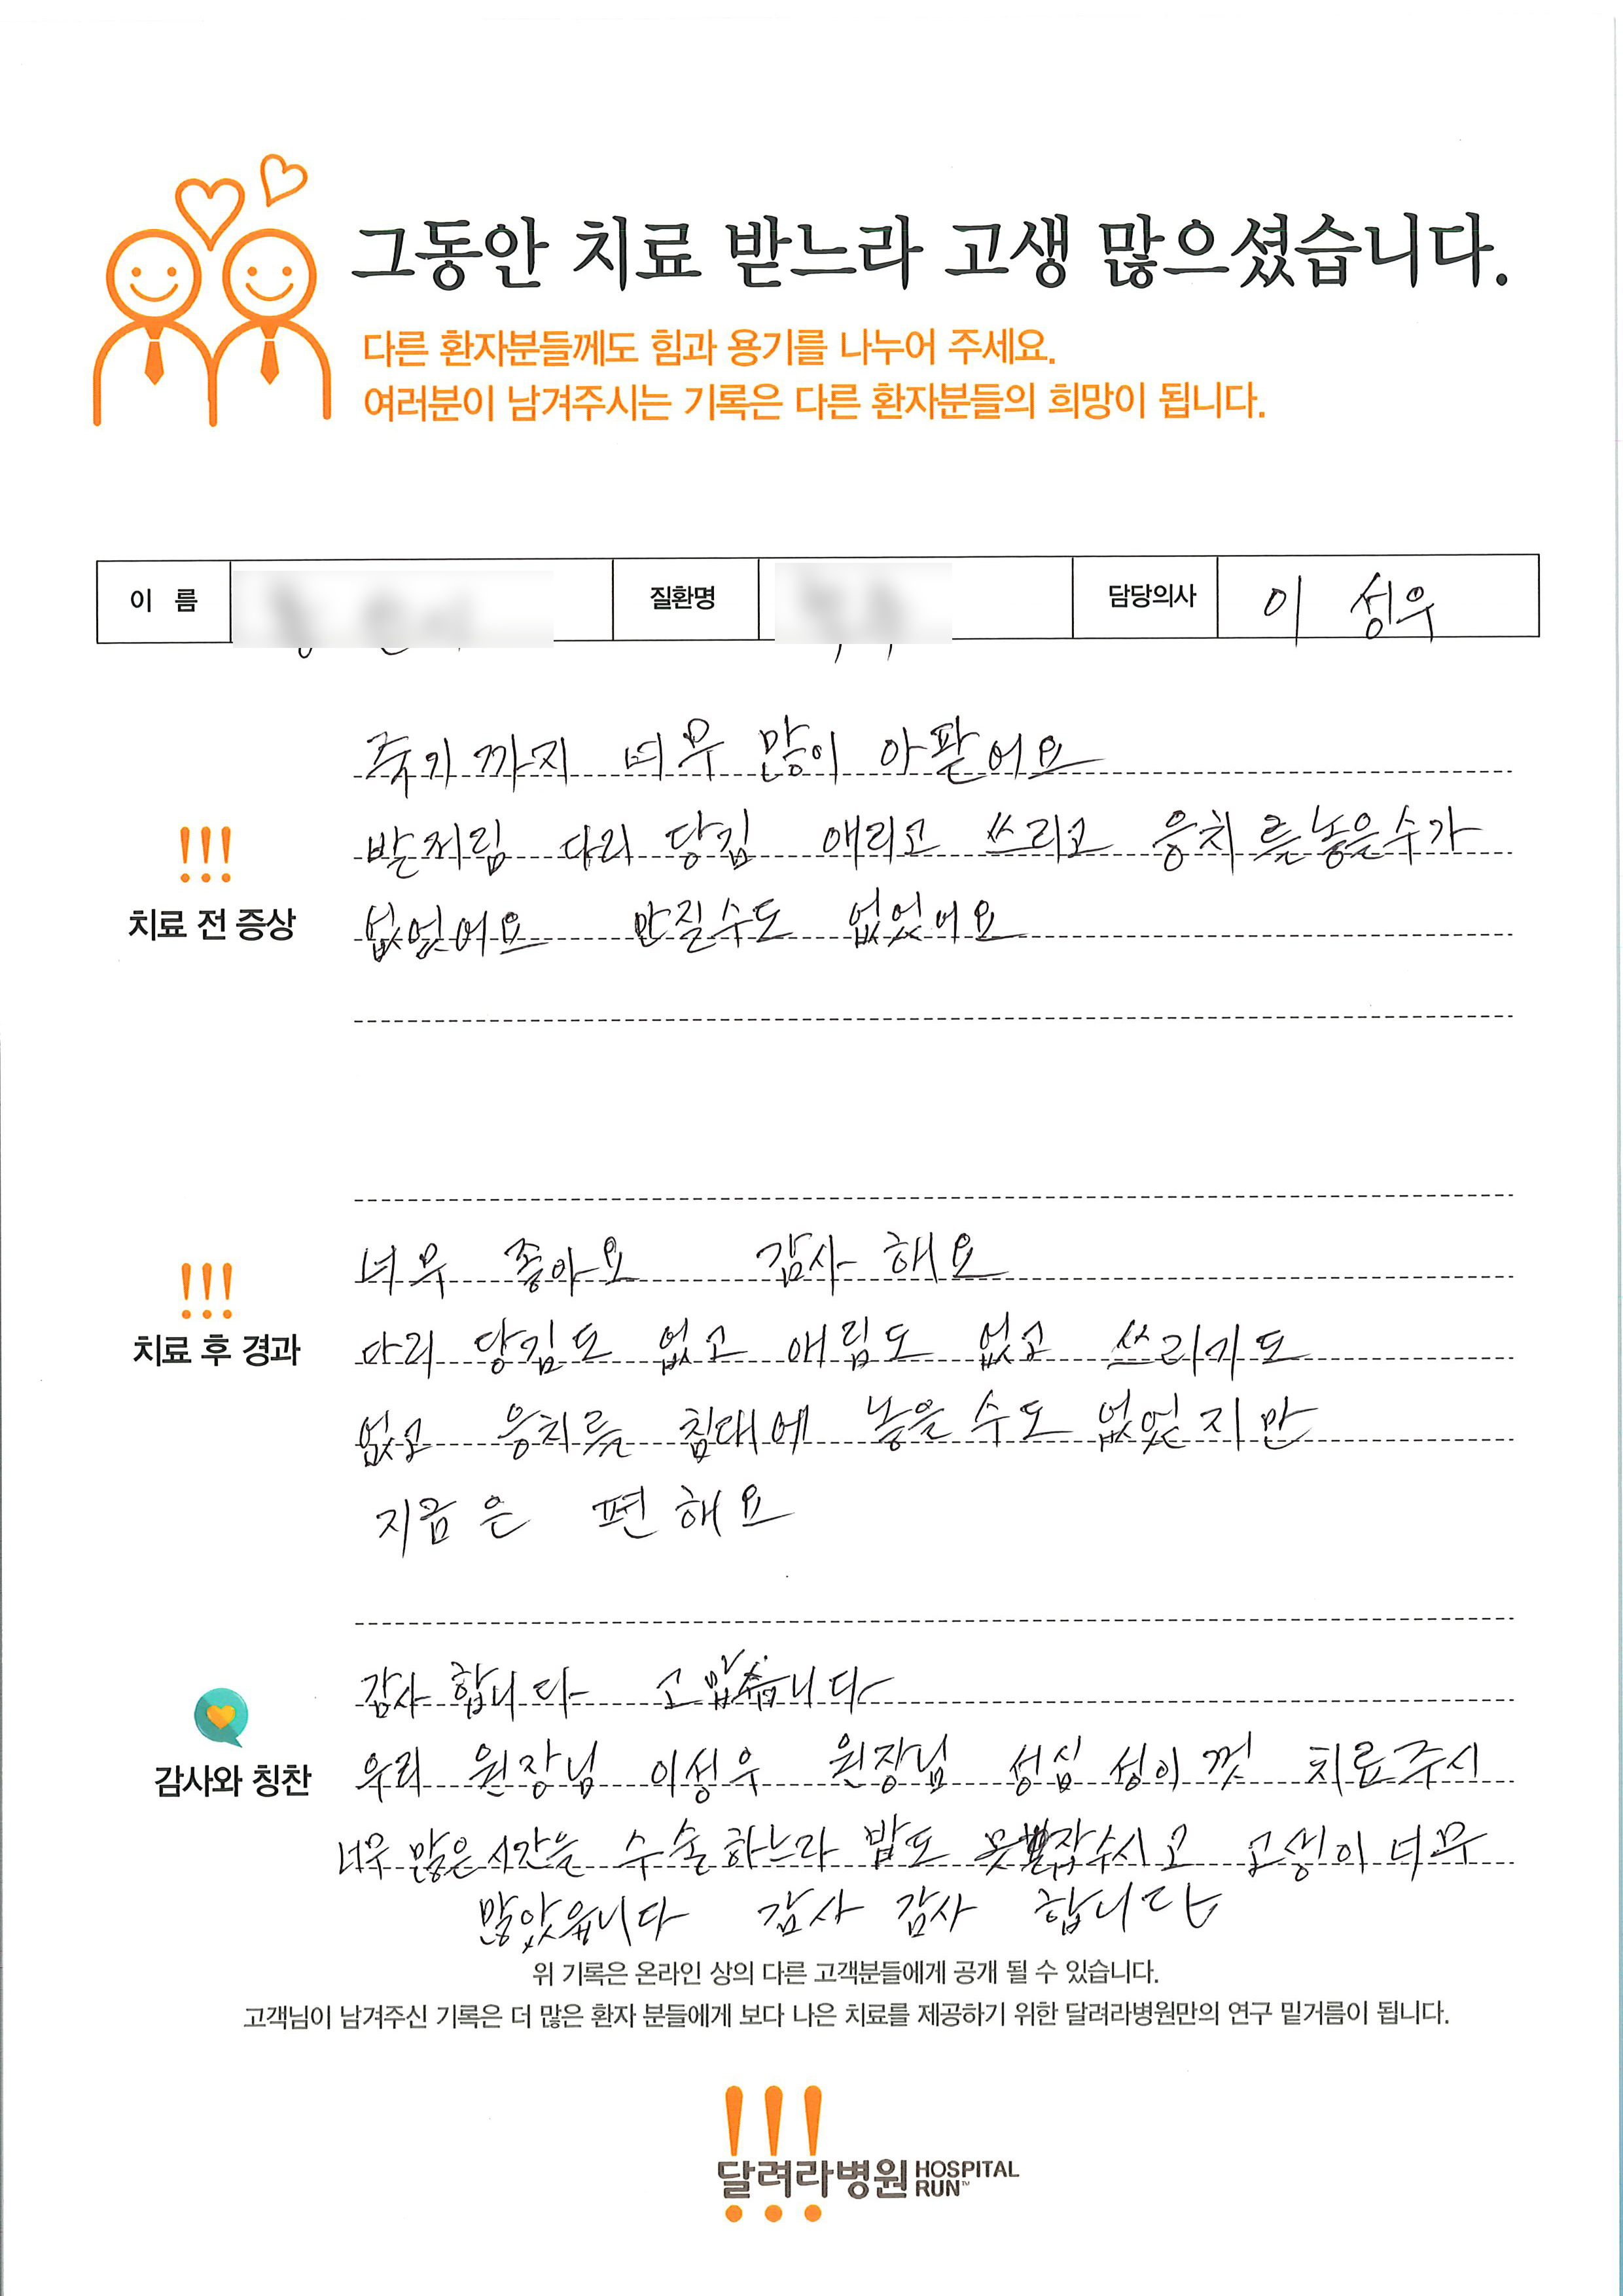 그동안 치료 받느라 고생 많으셨습니다.
다른 환자분들께도 힘과 용기를 나누어 주세요.
여러분이 남겨주시는 기록은 다른 환자분들의 희망이 됩니다.
이 름
질환명
담당의사 이 성우
죽기 까지 너무 많이 아팠어요
발저림 다리 당김 애리고 쓰리고 응치를 놓을수가
없었어요 만질수도 없었어요
!!!
치료 전 증상
너무 좋아요 감사 해요
!!!
치료 후 경과
다리 당김도 없고 애림도 없고 쓰리기도
없고 응치를 침대에 놓을 수도 없었지만
지금은 편해요
감사 합니다 고맙습니다
감사와 칭찬
우리 원장님 이성우 원장님 성심 성이껏 치료주시
너무 많은 시간을 수술하느라 밥도 못 잡수시고 고생이 너무
많았읍니다 감사 감사 합니다
위 기록은 온라인 상의 다른 고객분들에게 공개 될 수 있습니다.
고객님이 남겨주신 기록은 더 많은 환자 분들에게 보다 나은 치료를 제공하기 위한 달려라병원만의 연구 밑거름이 됩니다.
!!!
달려라병원 HOSPITAL
RUN™